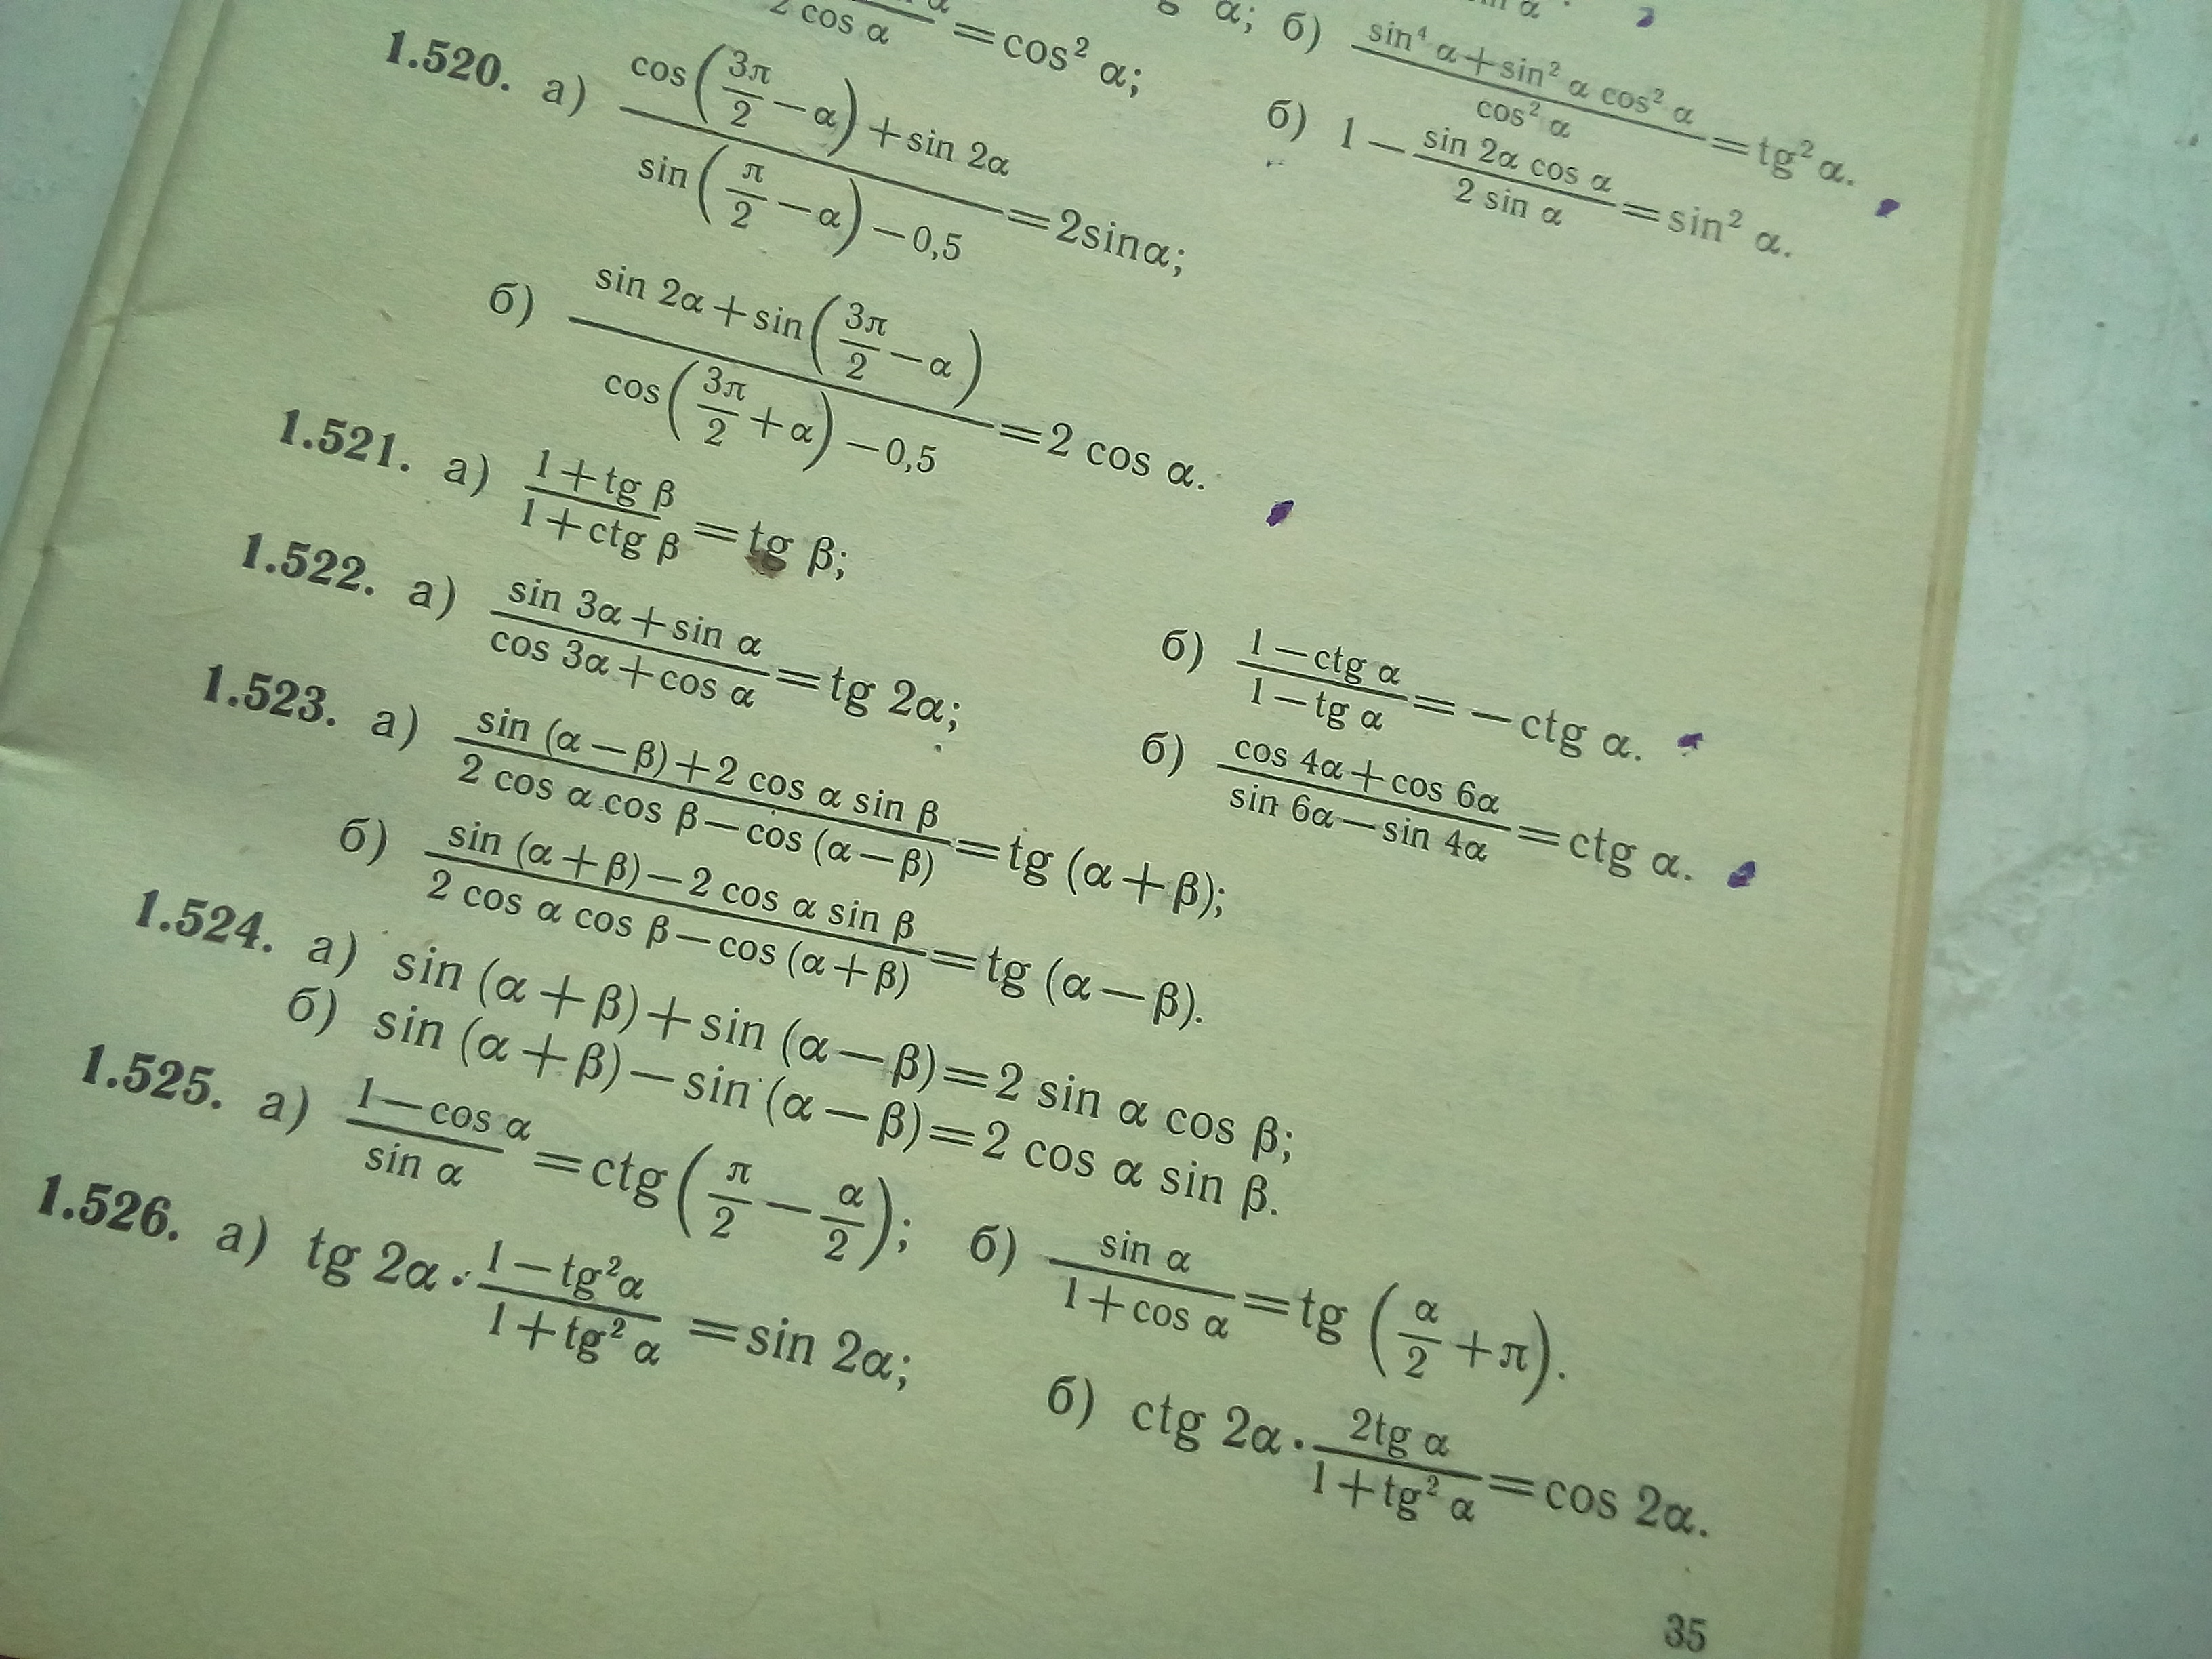 2 cos α = cos² α;
б) sin⁴ α + sin² α cos² α / cos² α = tg² α.
б) 1 − sin 2α cos α / 2 sin α = sin² α.
1.520. а) cos(3π/2 − α) + sin 2α / sin(π/2 − α) − 0,5 = 2sinα;
б) sin 2α + sin(3π/2 − α) / cos(3π/2 + α) − 0,5 = 2 cos α.
1.521. а) 1 + tg β / 1 + ctg β = tg β;
б) 1 − ctg α / 1 − tg α = − ctg α.
1.522. а) sin 3α + sin α / cos 3α + cos α = tg 2α;
б) cos 4α + cos 6α / sin 6α − sin 4α = ctg α.
1.523. а) sin (α − β) + 2 cos α sin β / 2 cos α cos β − cos (α − β) = tg (α + β);
б) sin (α + β) − 2 cos α sin β / 2 cos α cos β − cos (α + β) = tg (α − β).
1.524. а) sin (α + β) + sin (α − β) = 2 sin α cos β;
б) sin (α + β) − sin (α − β) = 2 cos α sin β.
1.525. а) 1 − cos α / sin α = ctg(π/2 − α/2); б) sin α / 1 + cos α = tg (α/2 + π).
1.526. а) tg 2α · 1 − tg²α / 1 + tg² α = sin 2α;
б) ctg 2α · 2tg α / 1 + tg² α = cos 2α.
35